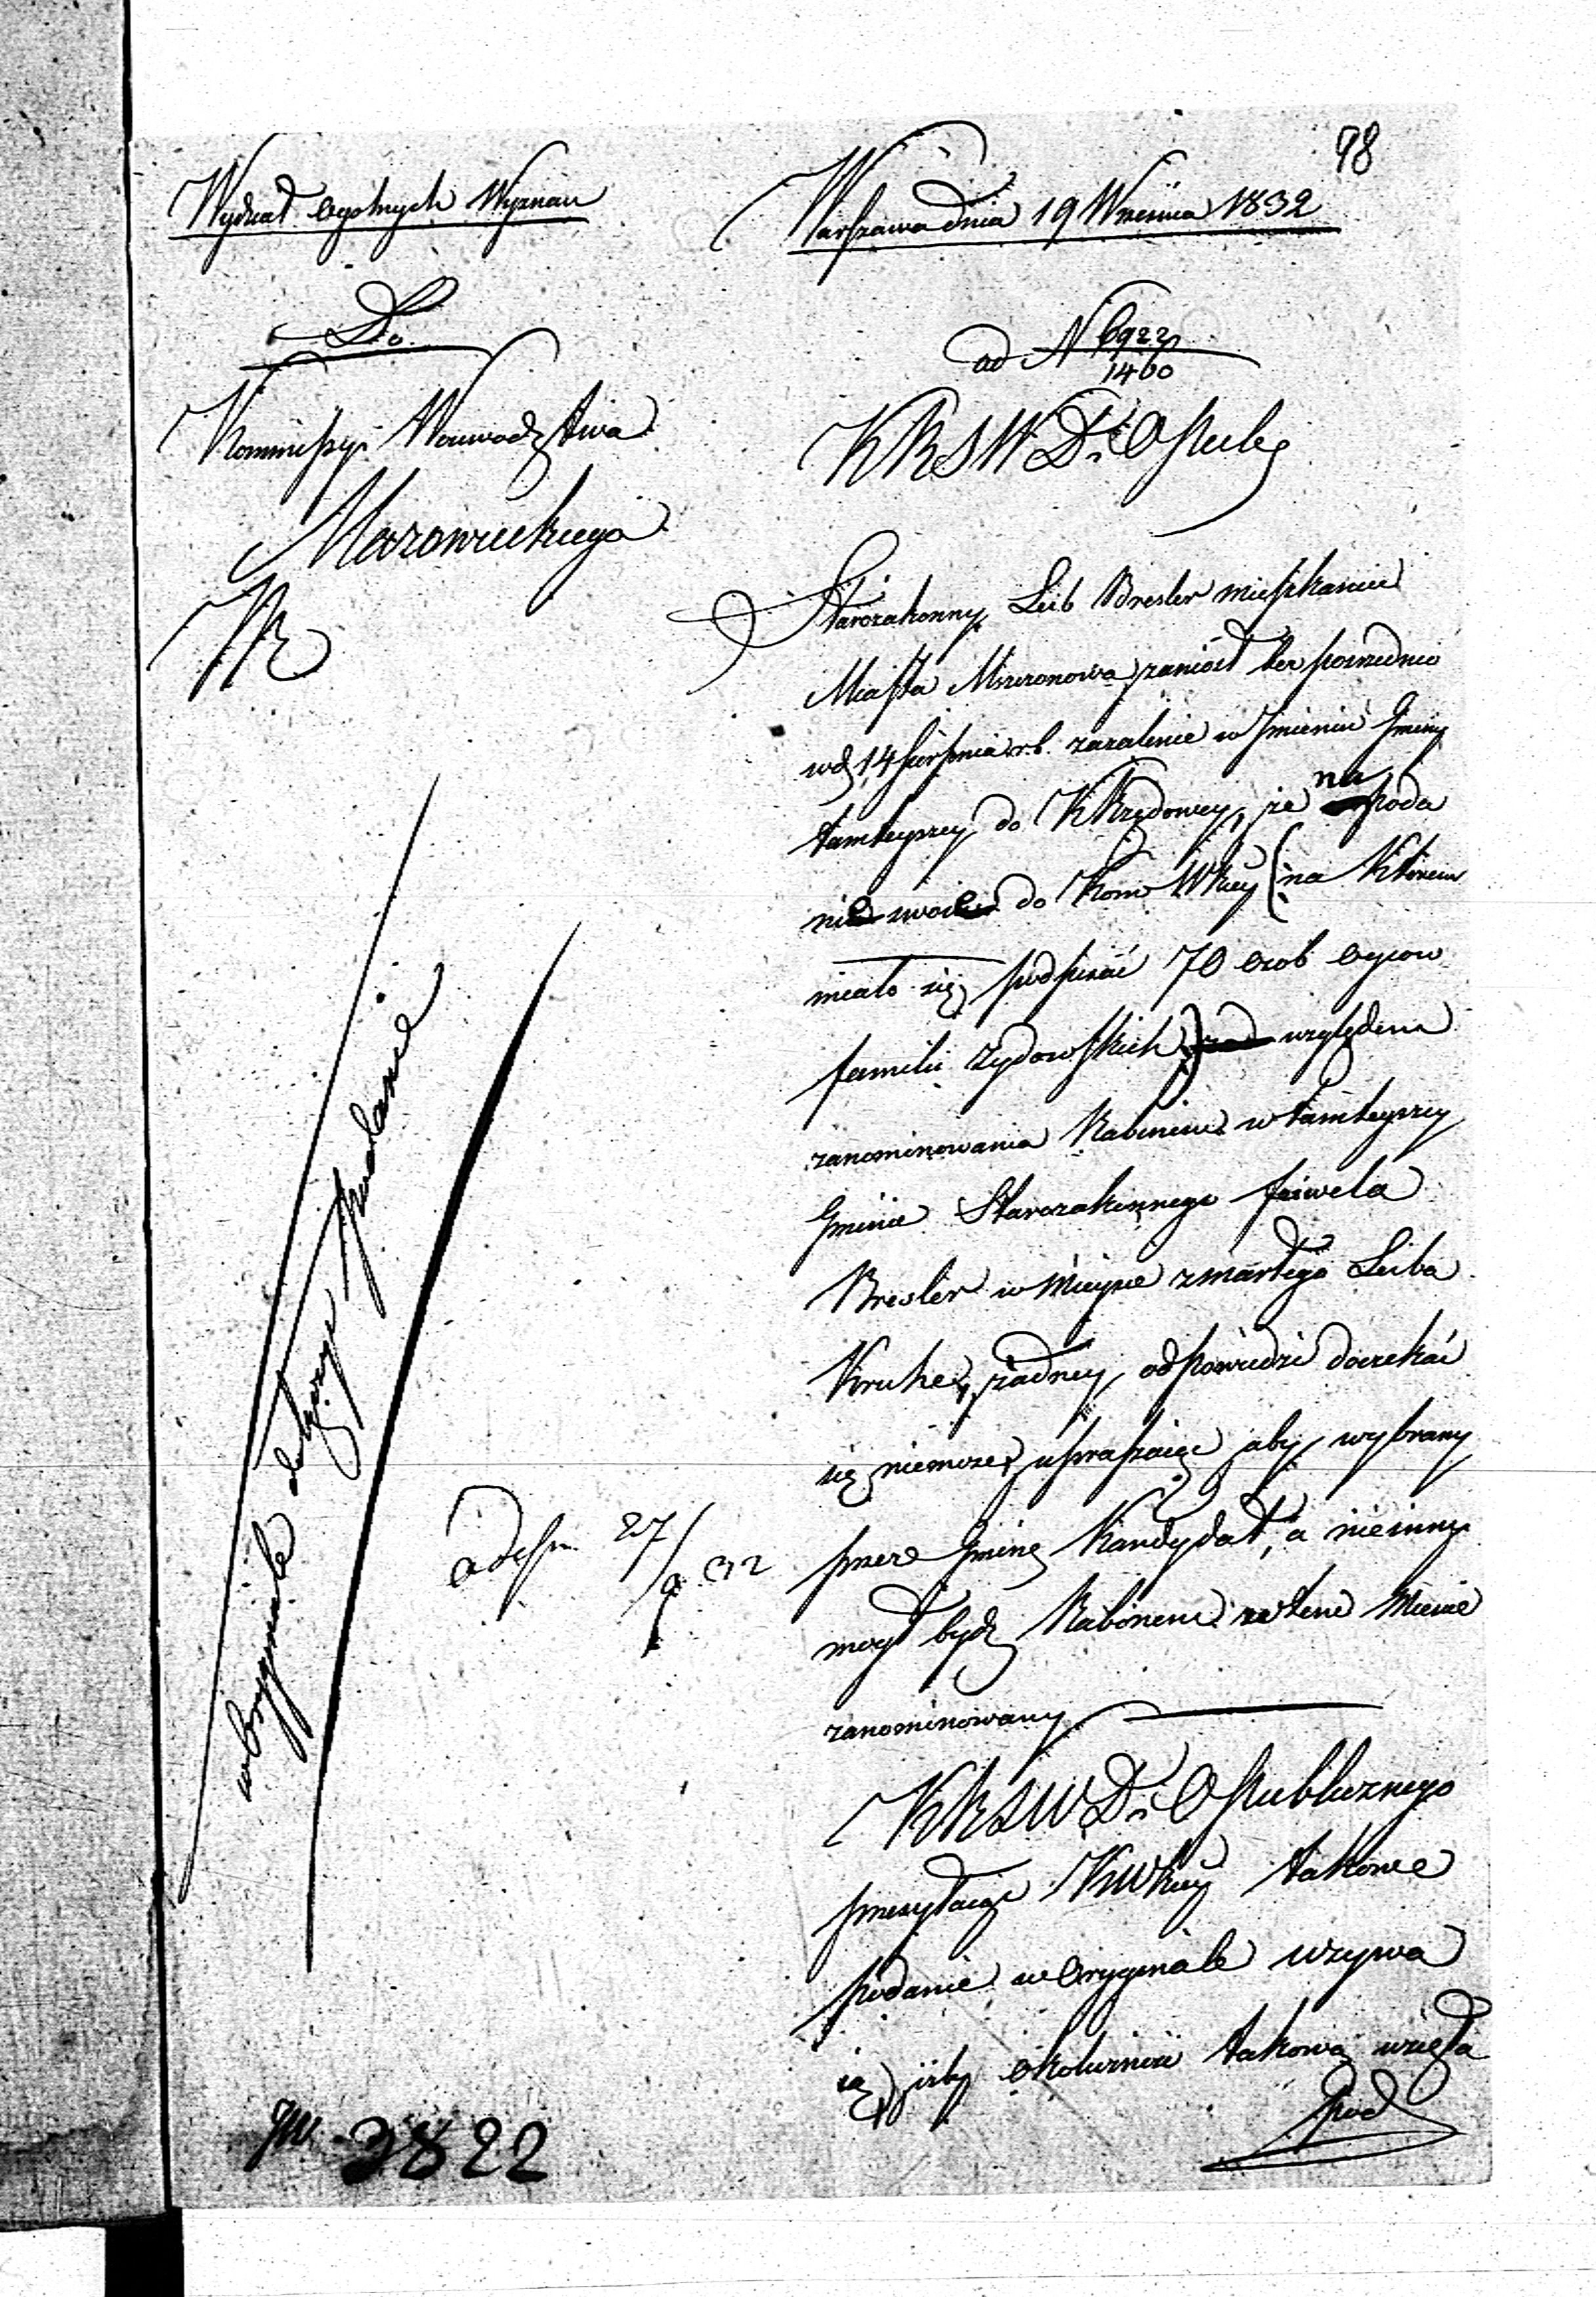 98
Wydział ogolnych Wyznań
Warszawa dnia 19 Września 1832
Do
ad N 6922/1460
Kommissyi Woiewództwa
Mazowieckiego
KRSWD i OPubl
Starozakonny Leib Bresler mieszkaniec
Miasta Mszczonowa zaniósł bezpośrednio
w d 14 Sierpnia r.b. zażalenie w Imieniu Gminy
tamteyszey do KRządowey, że na poda
nie swoie do Kom WKiey (na którem
miało się podpisać 70 osob oycow
familii żydowskich) względem
zanominowania Rabinem w tamteyszey
Gminie Starozakonnego Faiwela
Bresler w mieysce zmarłego Leiba
Kruhe, żadney odpowiedzi doczekać
się niemoże, upraszaiąc aby wybrany
przez Gminę Kandydat, a nie inny
mógł bydź Rabinem w tem mieście
zanominowany
KRSWD i OPublicznego
przesyłaiąc KWKiey takowe
podanie w Oryginale wzywa
ią, iżby okoliczność takową wzięła
pod
w Oryginale
27/9 32
3822